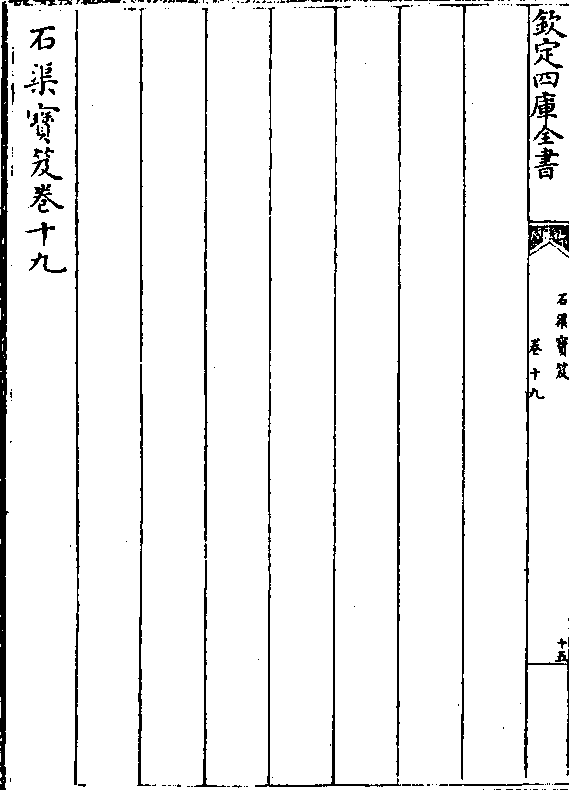 欽定四庫全書
石渠寶笈
卷十九
十五
石渠寶笈卷十九